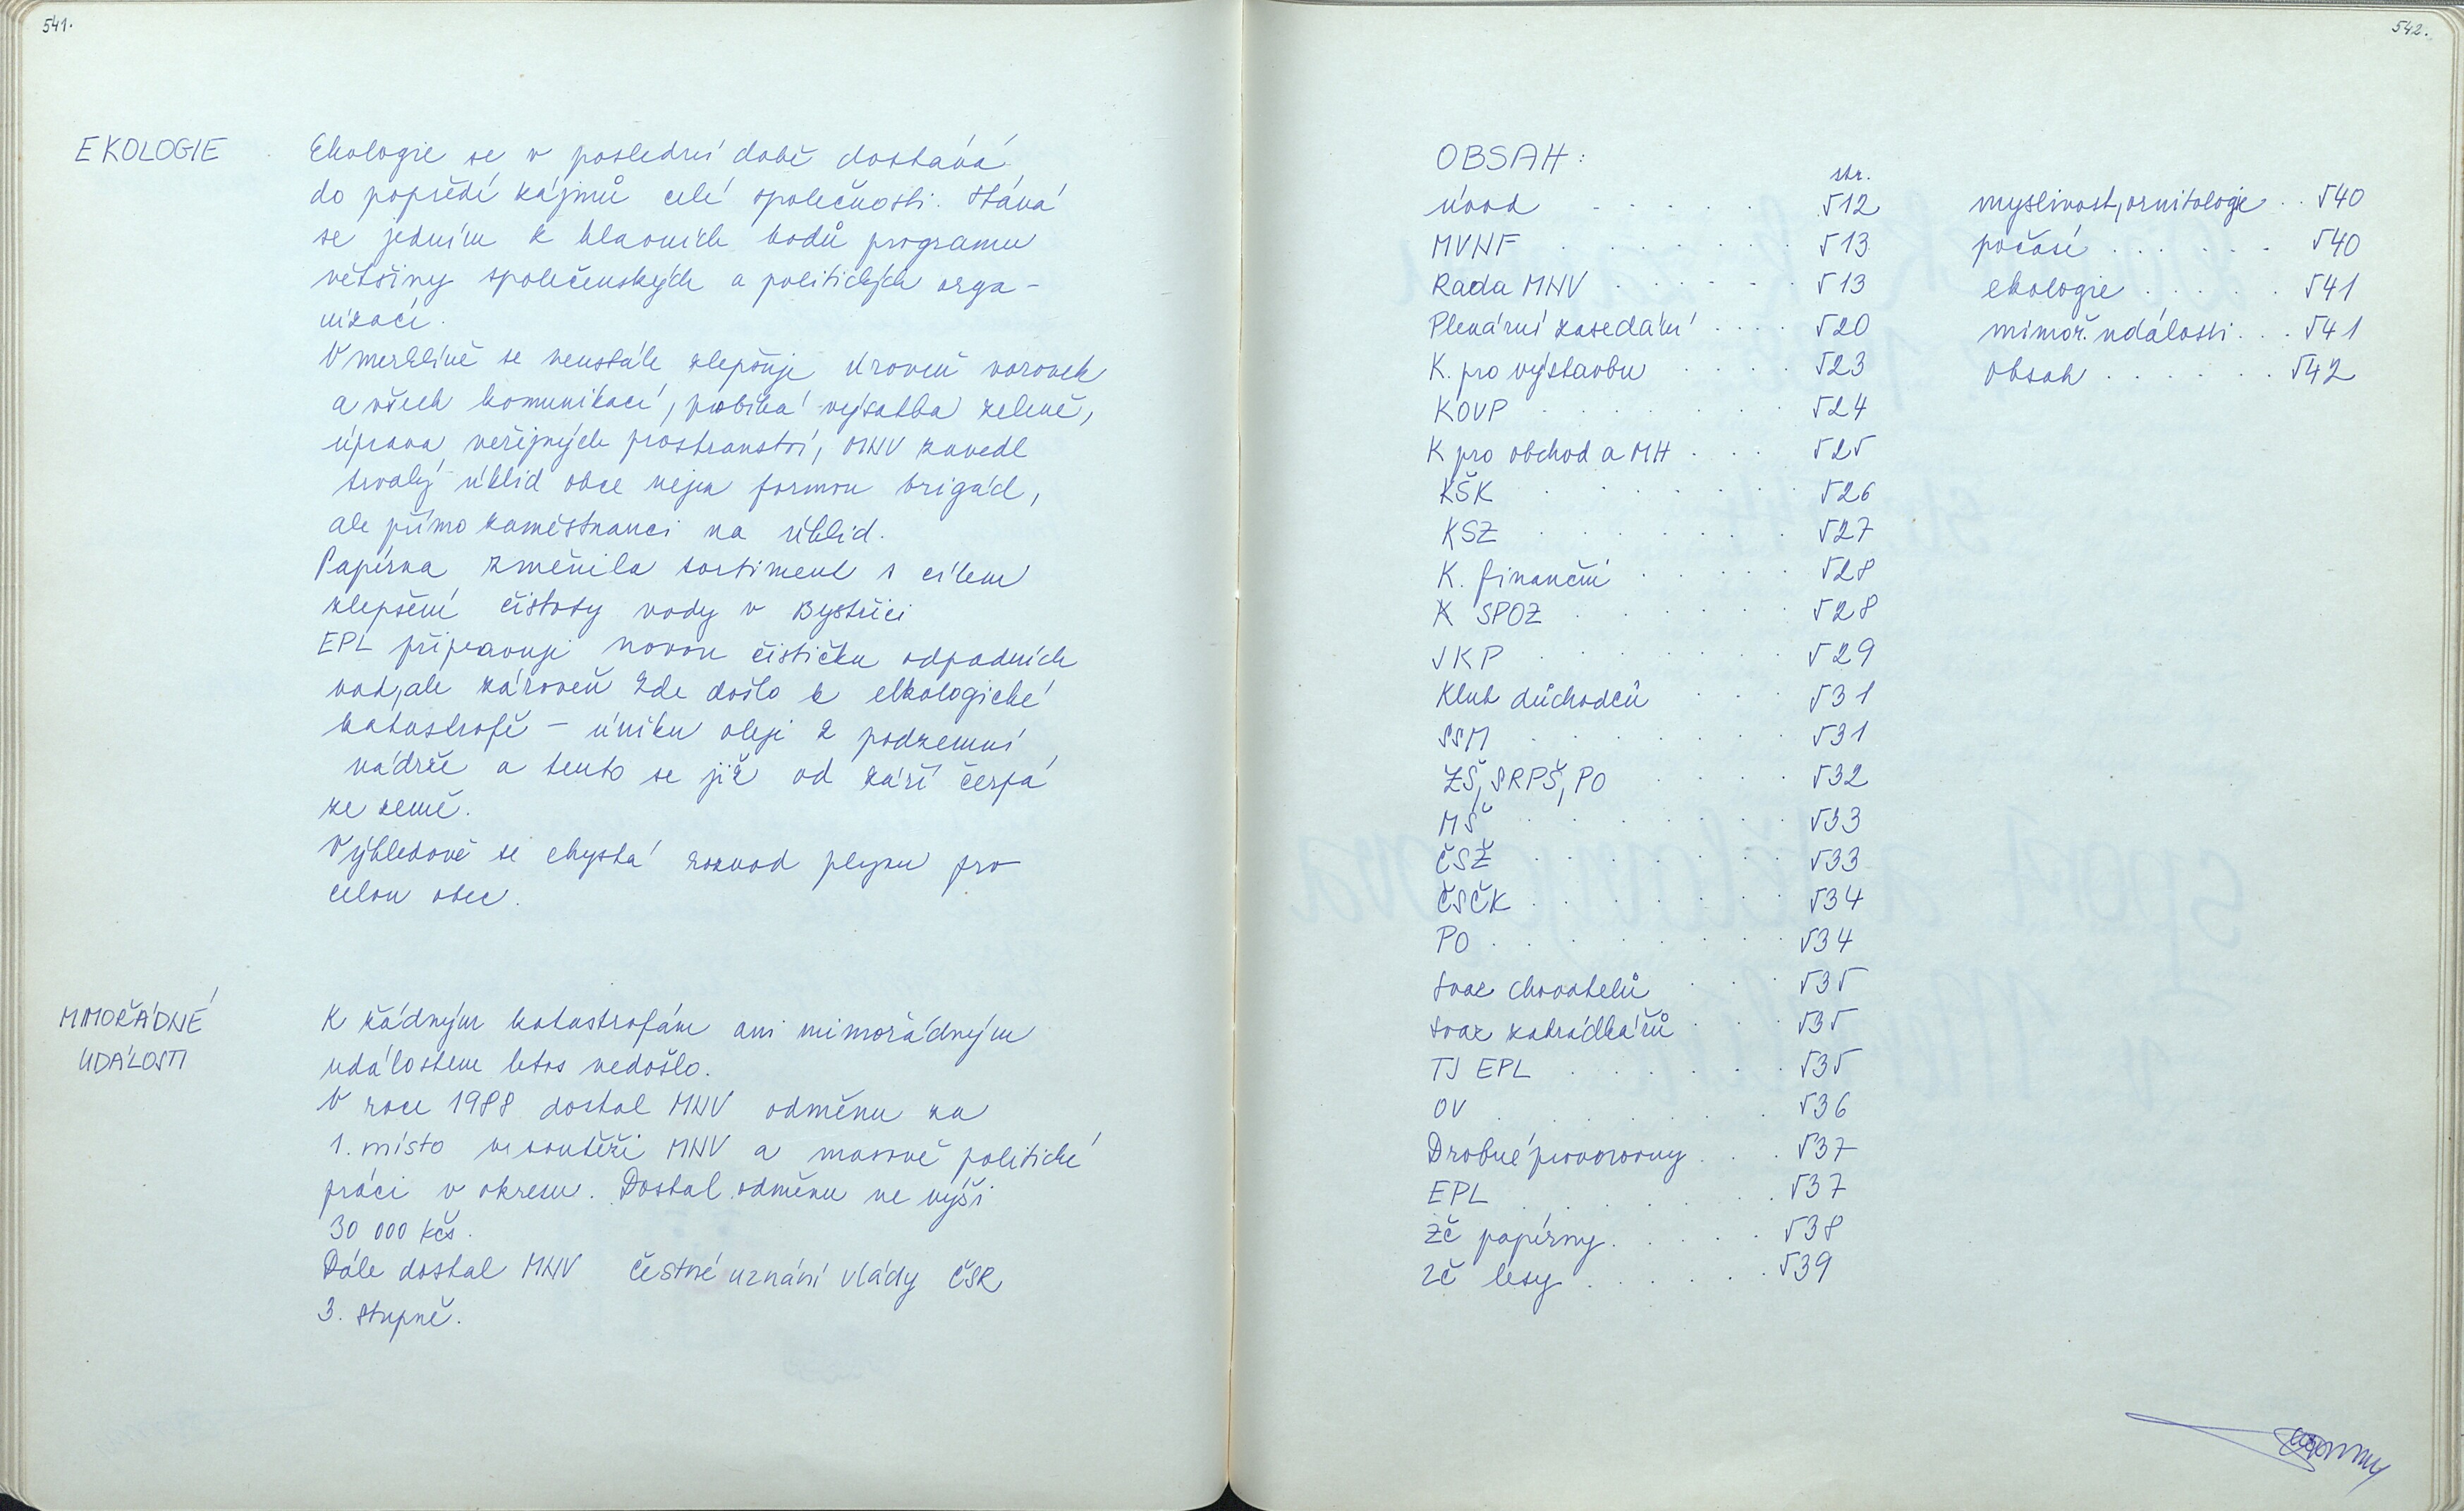 541.
EKOLOGIE
Ekologie se v poslední době dostává
do popředí zájmů celé společnosti. Stává
se jedním z hlavních bodů programu
většiny společenských a politických orga-
nizací.
V Merklíně se neustále zlepšuje úroveň vozovek
a všech komunikací, probíhá výsadba zeleně,
úprava veřejných prostranství, MNV zavedl
trvalý úklid obce nejen formou brigád,
ale přímo zaměstnanci na úklid.
Papírna změnila sortiment s cílem
zlepšení čistoty vody v Bystřici
EPL připravuje novou čističku odpadních
vod, ale zároveň zde došlo k elkologické
katastrofě - úniku oleje z podzemní
nádrže a tento se již od září čerpá
ze země.
Výhledově se chystá rozvod plynu pro
celou obec.
MIMOŘÁDNÉ
UDÁLOSTI
K žádným katastrofám ani mimořádným
událostem letos nedošlo.
V roce 1988 dostal MNV odměnu za
1. místo v soutěži MNV a masově politické
práci v okresu. Dostal odměnu ve výši
30 000 Kčs.
Dále dostal MNV čestné uznání vlády ČSR
3. stupně.
542.
OBSAH:
str.
úvod . . . . . 512
MVNF . . . . . 513
Rada MNV . . . . . 513
Plenární zasedání . . . . 520
K. pro výstavbu . . . . 523
KOVP . . . . . 524
K pro obchod a MH . . . 525
KŠK . . . . . 526
KSZ . . . . . 527
K. finanční . . . . . 528
K SPOZ . . . . . 528
JKP . . . . . 529
Klub důchodců . . . 531
SSM . . . . . 531
ZŠ, SRPŠ, PO . . . . 532
MŠ . . . . . 533
ČSŽ . . . . . 533
ČSČK . . . . . 534
PO . . . . . 534
Svaz chovatelů . . . 535
Svaz zahrádkářů . . . 535
TJ EPL . . . . . 535
OV . . . . . 536
Drobné provozovny . . . 537
EPL . . . . . 537
ZČ papírny . . . . . 538
ZČ lesy . . . . . 539
myslivost, ornitologie . . 540
počasí . . . . . 540
ekologie . . . . . 541
mimoř. události . . . 541
obsah . . . . . 542